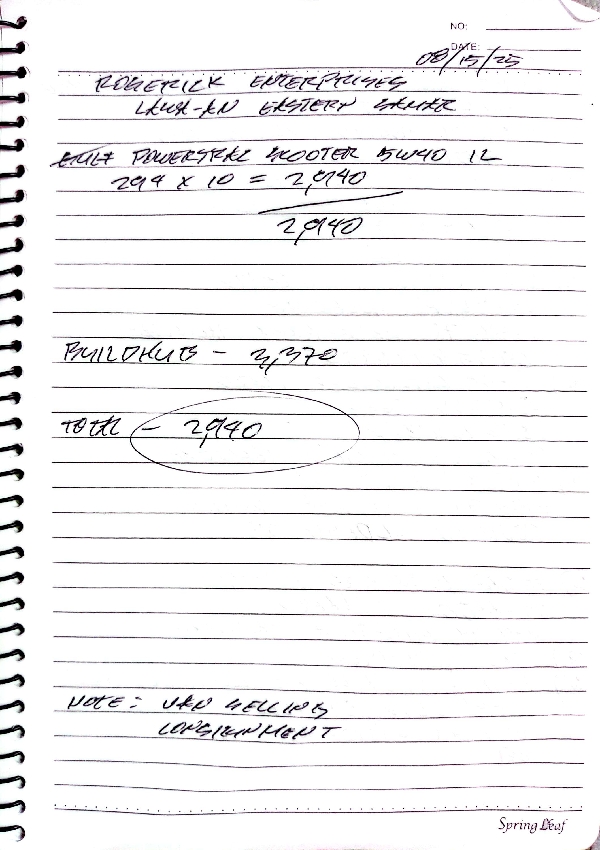 NO:
DATE: 08/15/25
RODERICK ENTERPRISES
LAWA-AN EASTERN SAMAR
POWERTRAC SCOOTER 5W40 1L
294 x 10 = 2,940
2,940
BUILDHUB - 3,370
TOTAL - 2,940
NOTE: VAN SELLING
CONSIGNMENT
Spring Leaf